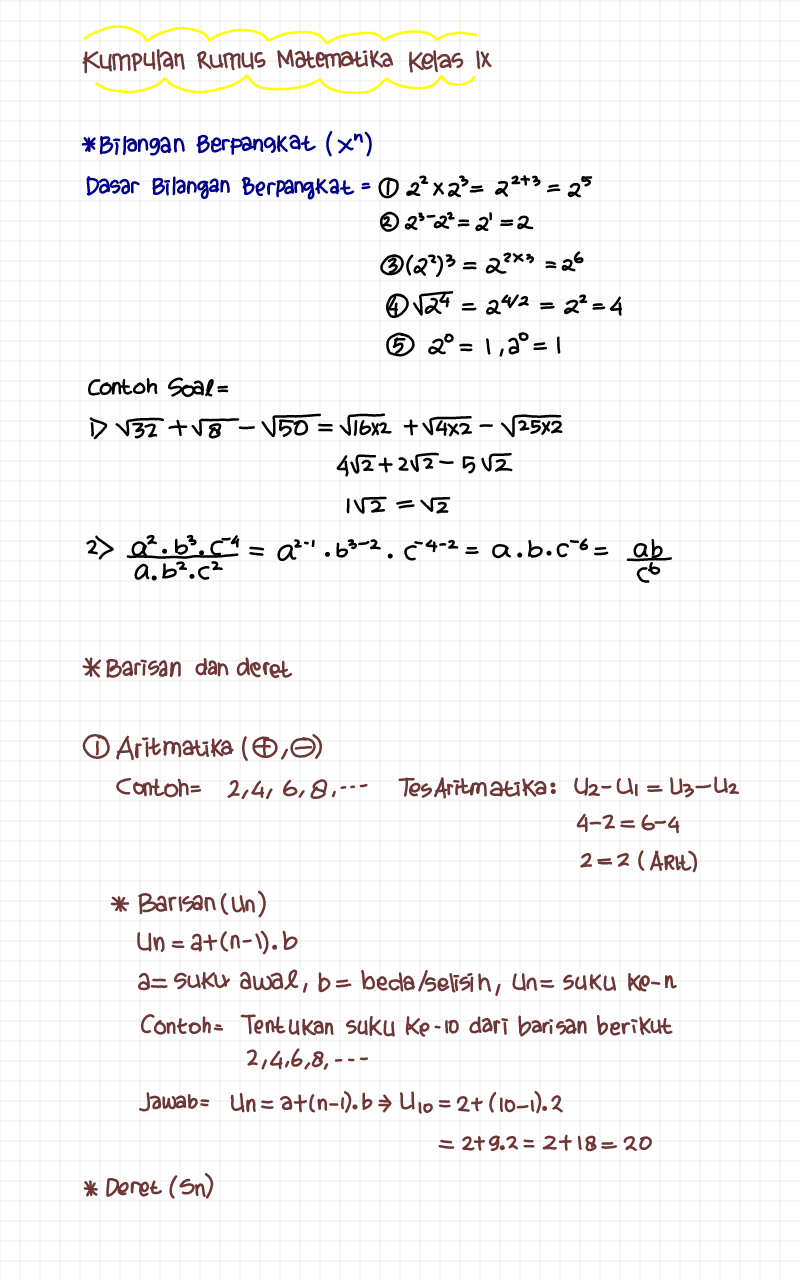 Kumpulan Rumus Matematika Kelas IX
*Bilangan Berpangkat (xⁿ)
Dasar Bilangan Berpangkat = ① 2² x 2³ = 2²⁺³ = 2⁵
② 2³⁻2² = 2¹ = 2
③ (2²)³ = 2²ˣ³ = 2⁶
④ √2⁴ = 2^4/2 = 2² = 4
⑤ 2⁰ = 1, a⁰ = 1
Contoh Soal =
1> √32 + √8 - √50 = √16x2 + √4x2 - √25x2
4√2 + 2√2 - 5√2
1√2 = √2
2> a².b³.c⁻⁴ / a.b².c² = a²⁻¹.b³⁻².c⁻⁴⁻² = a.b.c⁻⁶ = ab / c⁶
*Barisan dan deret
① Aritmatika (⊕,⊖)
Contoh= 2,4, 6,8,--- Tes Aritmatika: U2-U1 = U3-U2
4-2 = 6-4
2 = 2 (Arit)
* Barisan (Un)
Un = a+(n-1).b
a= suku awal, b = beda/selisih, Un= suku ke-n
Contoh= Tentukan suku ke-10 dari barisan berikut
2,4,6,8,---
Jawab= Un = a+(n-1).b → U10 = 2+(10-1).2
= 2+9.2 = 2+18 = 20
* Deret (Sn)